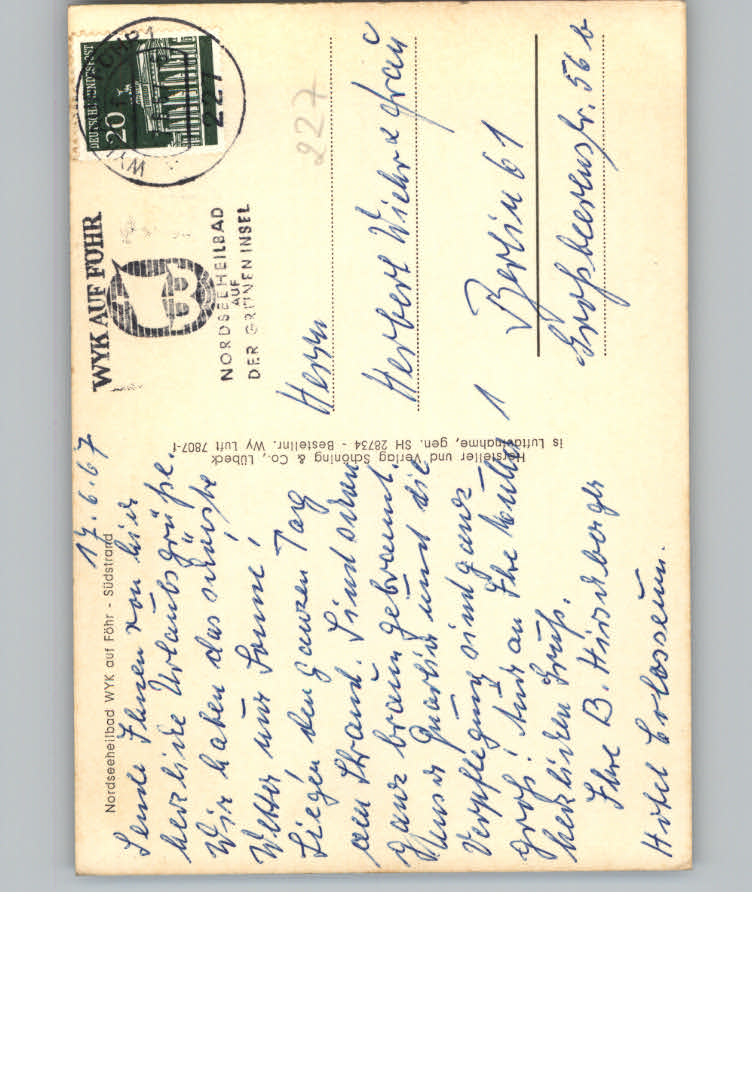 Nordseeheilbad WYK auf Föhr - Südstrand
17.6.67
Sende Ihnen von hier
herzliche Urlaubsgrüße.
Wir haben das schönste
Wetter nur Sonne!
Liegen den ganzen Tag
am Strand. Sind schon
ganz braun gebrannt.
Unser Quartier und die
Verpflegung sind ganz
groß! Auch an Ihre Mutter
herzlichen Gruß.
Ihre B. Hirschberger
Hotel Colosseum.
Hersteller und Verlag Schöning & Co., Lübeck
is Luftaufnahme, gen. SH 28734 - Bestellnr. Wy Luft 7807-f
WYK AUF FÖHR
NORDSEEHEILBAD
AUF
DER GRÜNEN INSEL
DEUTSCHE BUNDESPOST
20
227
227
Herrn
Herbert Wiehr & Frau
1 Berlin 61
Großbeerenstr. 56 b